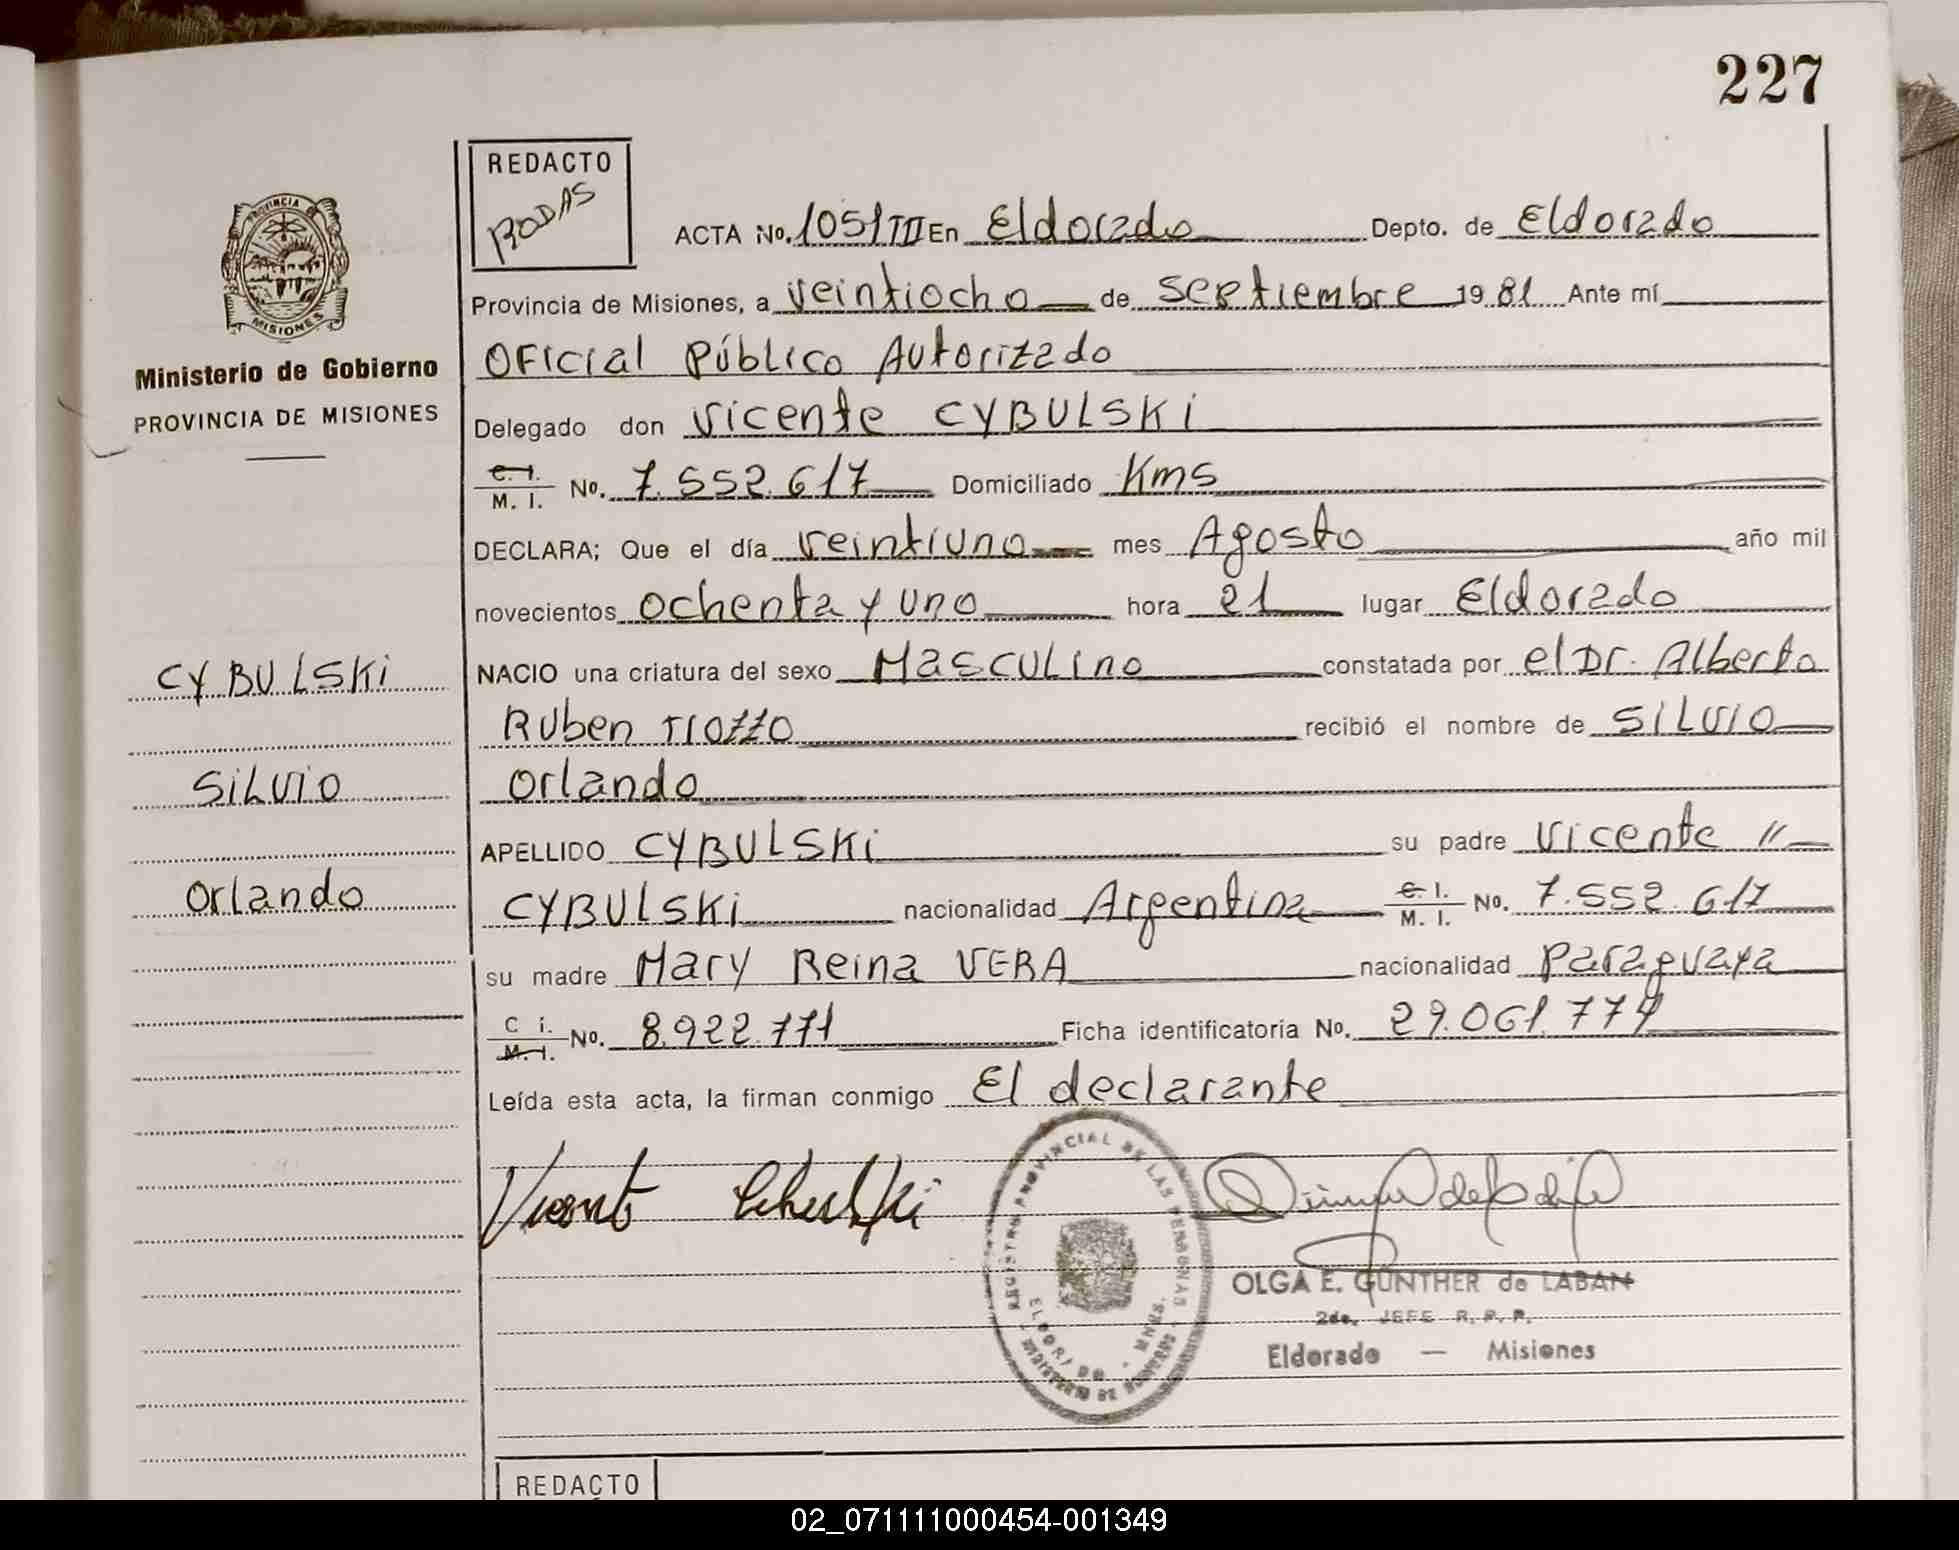 227
REDACTO
RODAS
PROVINCIA DE
MISIONES
Ministerio de Gobierno
PROVINCIA DE MISIONES
CYBULSKi
SiLVIO
Orlando
ACTA No. 1051 TIII En Eldorado Depto. de Eldorado
Provincia de Misiones, a veintiocho de septiembre 19 81 Ante mí
Oficial Público Autorizado
Delegado don Vicente CYBULSKi
C. I. / M. I. No. 7.552.617 Domiciliado Kms
DECLARA; Que el día veintiuno mes Agosto año mil
novecientos ochenta y uno hora 21 lugar Eldorado
NACIO una criatura del sexo Masculino constatada por el Dr. Alberto
Ruben TIOZZO recibió el nombre de SiLVIO
Orlando
APELLIDO CYBULSKi su padre Vicente "
CYBULSKi nacionalidad Argentina C. I. / M. I. No. 7.552.617
su madre Mary Reina VERA nacionalidad paraguaya
C i. / M. I. No. 8.922.771 Ficha identificatoria No. 29.061.774
Leída esta acta, la firman conmigo El declarante
Vicente Cibulski
REGISTRO PROVINCIAL DE LAS PERSONAS
ELDORADO - MNES.
MINISTERIO DE GOBIERNO
OLGA E. GÜNTHER de LABAN
2da. JEFE R. P. P.
Eldorado — Misiones
REDACTO
02_071111000454-001349